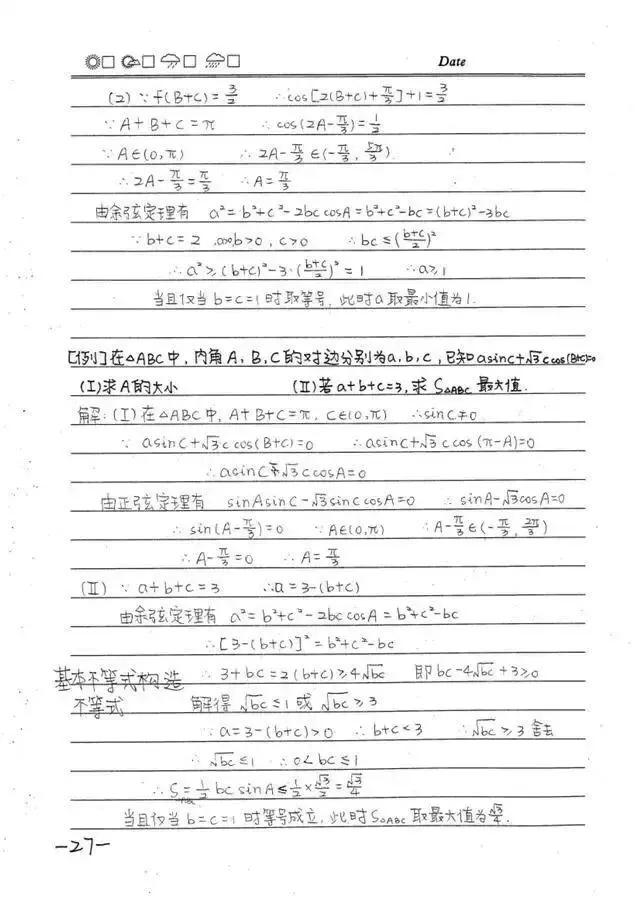 Date
(2) ∵ f(B+C)=3/2 ∴cos[2(B+C)+π/3]+1=3/2
∵ A+B+C=π ∴cos(2A-π/3)=1/2
∵ A∈(0,π) ∴ 2A-π/3∈(-π/3, 5π/3)
∴ 2A-π/3=π/3 ∴A=π/3
由余弦定理有 a²=b²+c²-2bc cosA=b²+c²-bc=(b+c)²-3bc
∵ b+c=2, b>0, c>0 ∴ bc≤((b+c)/2)²
∴ a²≥(b+c)²-3·((b+c)/2)²=1 ∴a≥1
当且仅当b=c=1时取等号,此时a取最小值为1.
[例1]在△ABC中,内角A,B,C的对边分别为a,b,c,已知asinC+√3ccos(B+C)=0
(Ⅰ)求A的大小 (Ⅱ)若a+b+c=3,求S△ABC最大值.
解:(Ⅰ)在△ABC中,A+B+C=π, C∈(0,π) ∴sinC≠0
∵ asinC+√3ccos(B+C)=0 ∴asinC+√3ccos(π-A)=0
∴asinC-√3ccosA=0
由正弦定理有 sinAsinC-√3sinCcosA=0 ∴ sinA-√3cosA=0
∴ sin(A-π/3)=0 ∵A∈(0,π) ∴A-π/3∈(-π/3, 2π/3)
∴A-π/3=0 ∴A=π/3
(Ⅱ) ∵ a+b+c=3 ∴a=3-(b+c)
由余弦定理有 a²=b²+c²-2bccosA=b²+c²-bc
∴[3-(b+c)]²=b²+c²-bc
基本不等式构造 ∴ 3+bc=2(b+c)≥4√bc 即bc-4√bc+3≥0
不等式 解得√bc≤1或√bc≥3
∵ a=3-(b+c)>0 ∴b+c<3 ∴√bc≥3舍去
∴ √bc≤1 ∴0<bc≤1
∴S△ABC=1/2bcsinA≤1/2×√3/2=√3/4
当且仅当b=c=1时等号成立,此时S△ABC取最大值为√3/4.
-27-